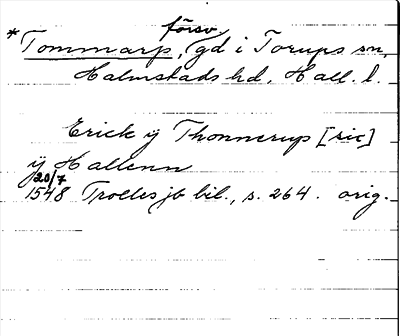 försv.
*Tommarp, gd i Torups sn,
Halmstads hd, Hall. l.
Erick ÿ Thonnerup [sic]
ÿ Hallenn
20/7
1548 Trolles jb bil., s. 264. orig.